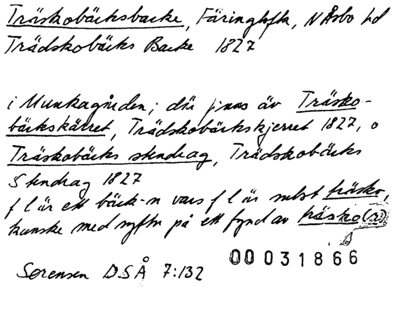 Träskobäcksbacke, Färingtofta, N Åsbo hd
Trädskobäcks Backe 1827
i Munkagården; där finns äv Träsko-
bäckskärret, Trädskobäckskjerret 1827, o
Träskobäcks stendrag, Trädskobäcks
Stendrag 1827
f l är ett bäck-n vars f l är subst träsko,
kanske med syftn på ett fynd av träsko(r)
00031866
Sørensen DSÅ 7:132